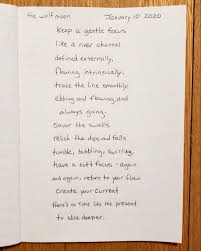 the wolf moon January 10 2020
keep a gentle focus
like a river channel
defined externally,
flowing intrinsically.
trace the line smoothly,
ebbing and flowing, and
always going.
savor the swells
relish the dips and falls
tumble, bubbling, swirling.
have a soft focus - again
and again, return to your flow.
create your current
there's no time like the present
to slice deeper.